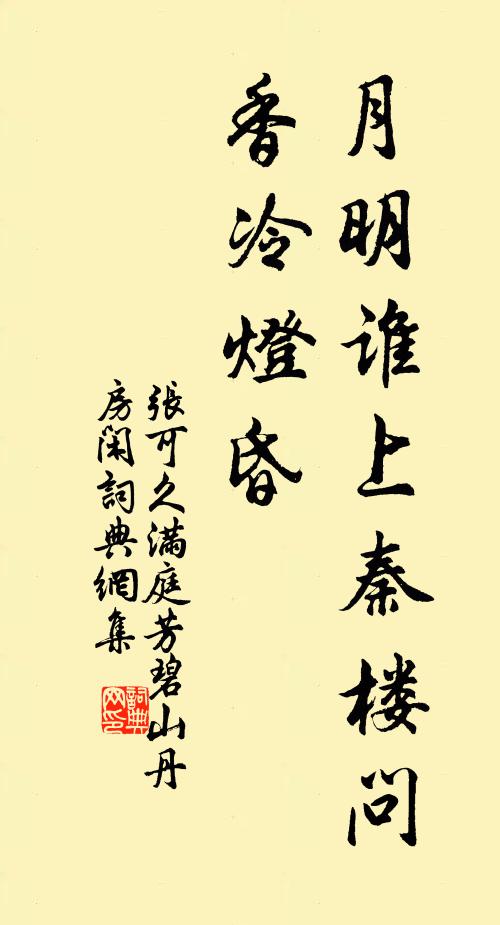 月明谁上秦楼问
香冷燈昏
張可久满庭芳碧山丹
房閑詞典網集
詞典
网印